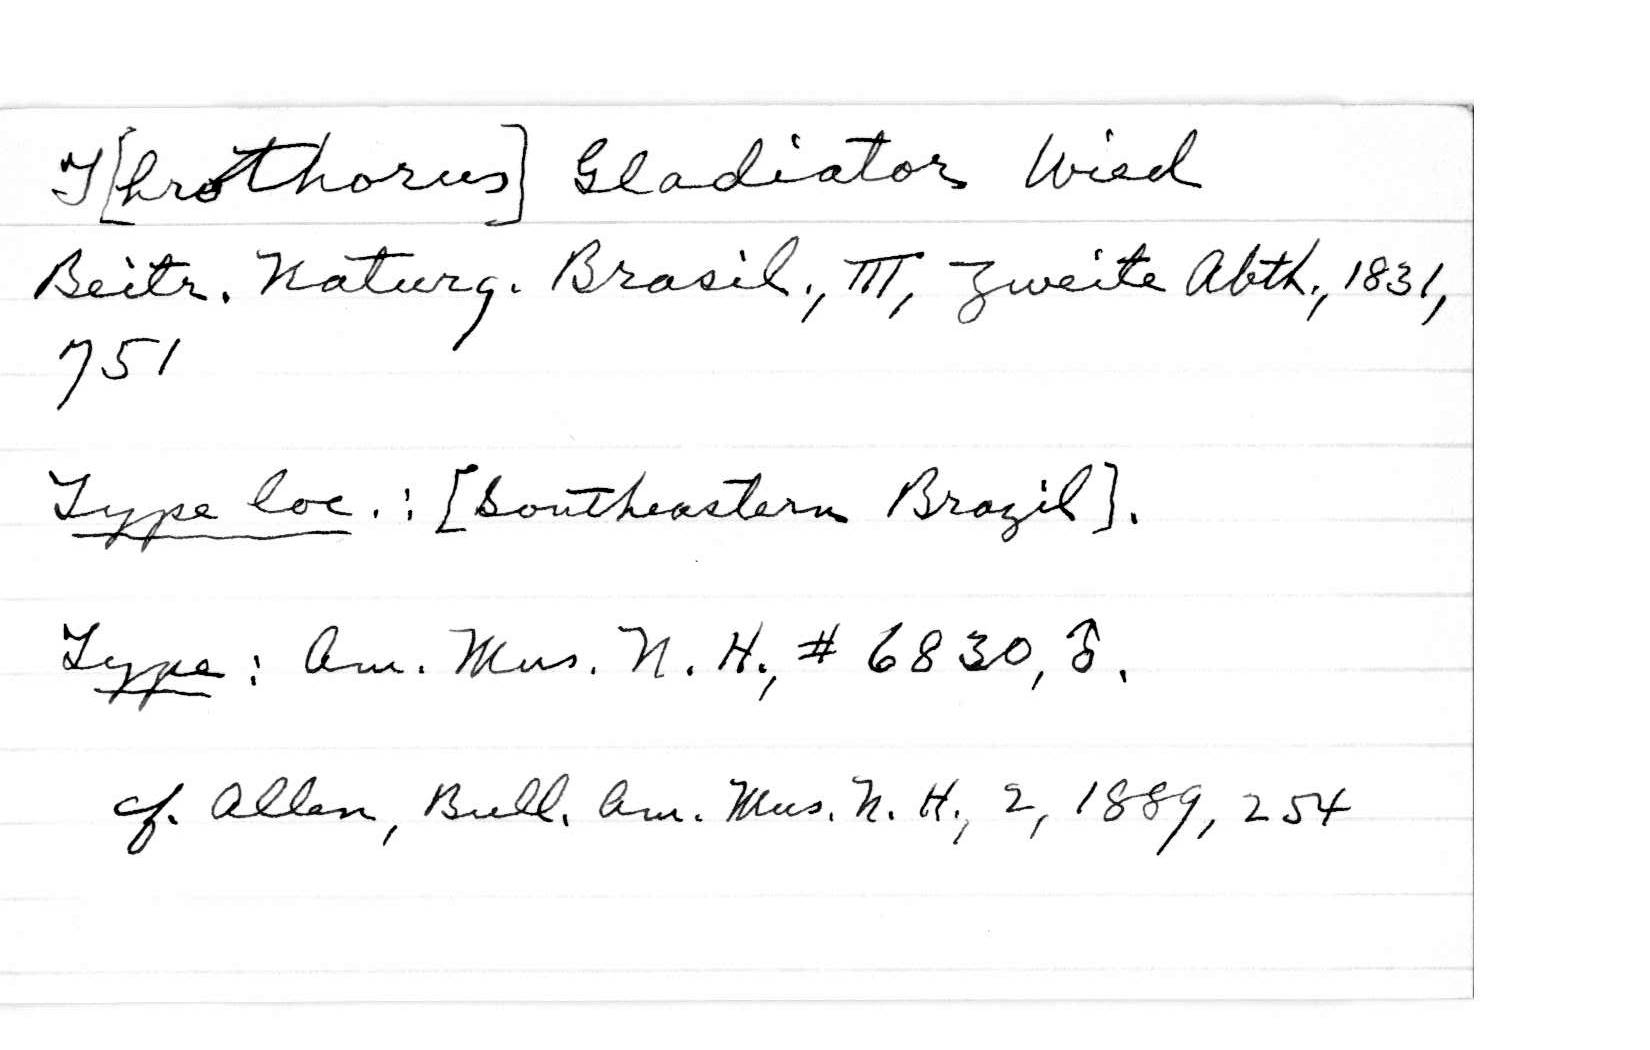 T[hrothorus] Gladiator Wied
Beitr. Naturg. Brasil., III, Zweite Abth., 1831,
751
Type loc.: [Southeastern Brazil].
Type: Am. Mus. N. H., # 6830, ♂.
cf. Allen, Bull. Am. Mus. N. H., 2, 1889, 254